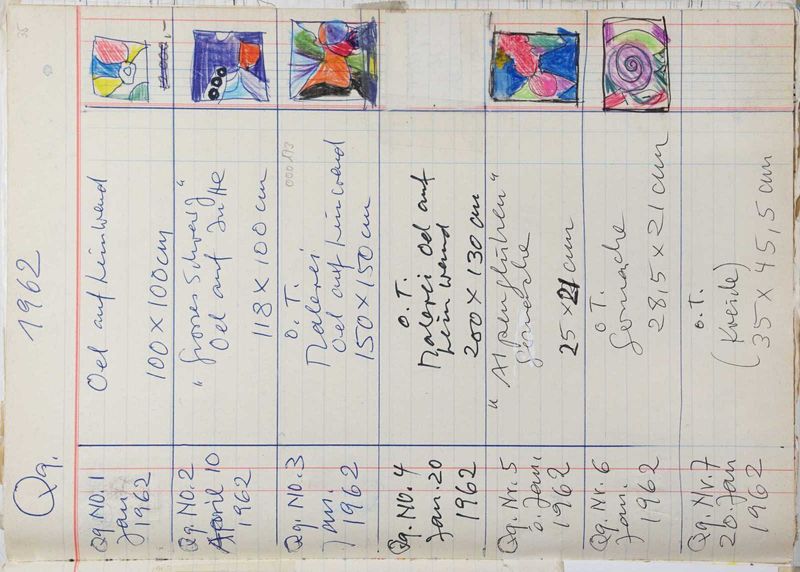 35
Qg. 1962
Qg. NO. 1
Jan.
1962
Oel auf Leinwand
100 x 100 cm
Qg. NO. 2
April 10
1962
"Grosses Schweig"
Oel auf Jutte
118 x 100 cm
Qg. NO. 3
Jan.
1962
O. T.
Malerei
Oel auf Leinwand
150 x 150 cm
Qg. NO. 4
Jan. 20
1962
O. T.
Malerei Oel auf
Leinwand
200 x 130 cm
Qg. Nr. 5
o. Jan.
1962
"Alpenglühen"
Gouache
25 x 21 cm
Qg. Nr. 6
Jan.
1962
O T.
Gouache
28,5 x 21 cm
Qg. Nr. 7
20. Jan
1962
O. T.
(Kreide)
35 x 45,5 cm